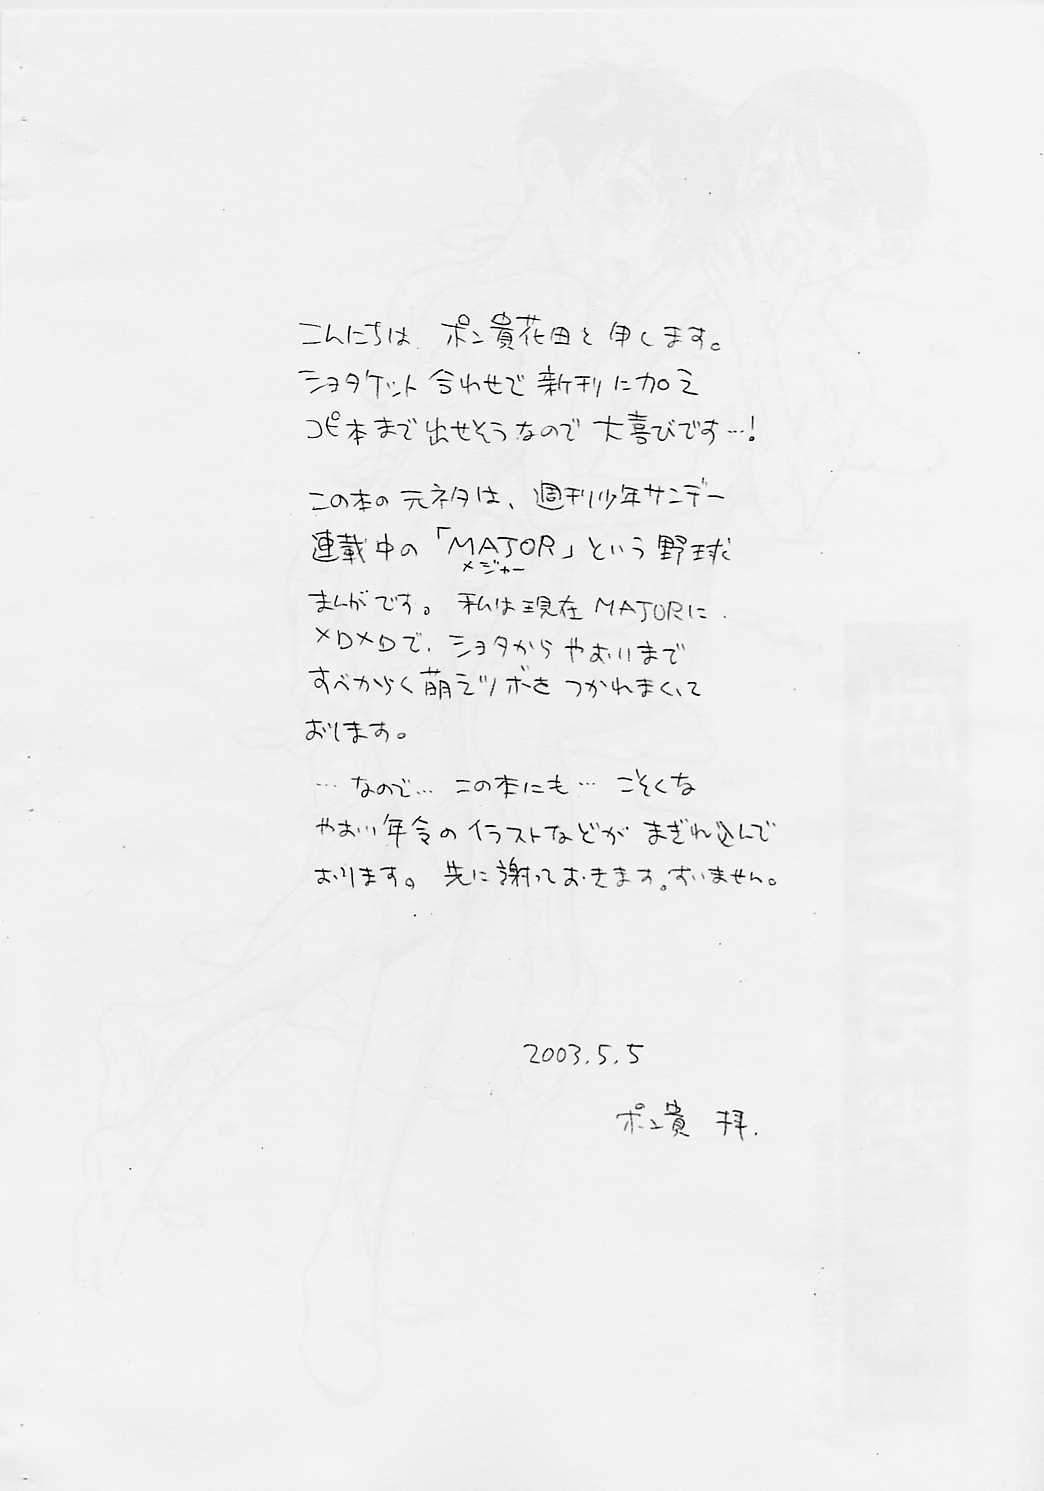 こんにちは ポン貴花田と申します。
ショタケット合わせで新刊に加え
コピ本まで出せそうなので大喜びです…!
この本の元ネタは、週刊少年サンデー
連載中の「MAJOR」という野球
メジャー
まんがです。私は現在MAJORに
メロメロで、ショタからやおいまで
すべからく萌えツボをつかれまくって
おります。
…なので…この本にも…ごそくな
やおい年令のイラストなどがまぎれ込んで
おります。先に謝っておきます。すいません。
2003.5.5
ポン貴 拝.